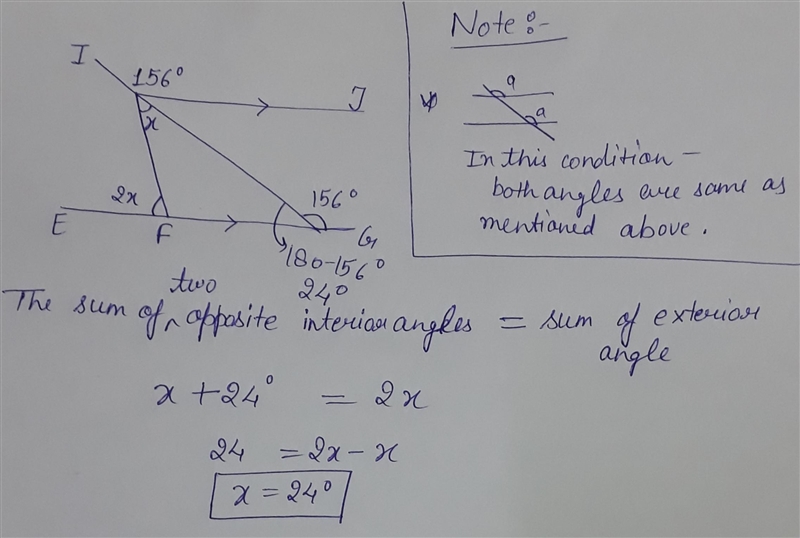 Note:-
I
156°
J
x
2x
156°
E
F
G
180-156°
24°
a
a
In this condition -
both angles are same as
mentioned above.
two
The sum of ^ opposite interior angles = sum of exterior
angle
x + 24° = 2x
24 = 2x - x
x = 24°